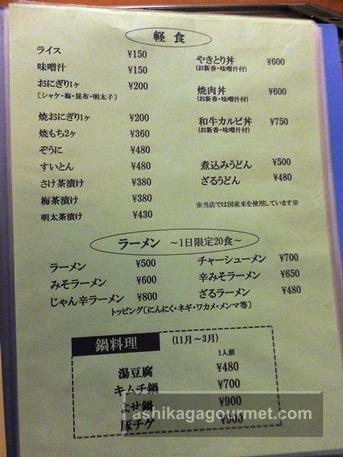 軽食
ライス ¥150
味噌汁 ¥150
おにぎり1ヶ ¥200
〔シャケ・梅・昆布・明太子〕
焼おにぎり1ヶ ¥200
焼もち2ヶ ¥360
ぞうに ¥480
すいとん ¥480
さけ茶漬け ¥380
梅茶漬け ¥380
明太茶漬け ¥430
やきとり丼 ¥600
(お新香・味噌汁付)
焼肉丼 ¥600
(お新香・味噌汁付)
和牛カルビ丼 ¥750
(お新香・味噌汁付)
煮込みうどん ¥500
ざるうどん ¥480
※当店では国産米を使用しています※
ラーメン ~1日限定20食~
ラーメン ¥500
みそラーメン ¥600
じゃん辛ラーメン ¥800
チャーシューメン ¥700
辛みそラーメン ¥650
ざるラーメン ¥480
トッピング〔にんにく・ネギ・ワカメ・メンマ等〕
鍋料理 (11月~3月)
1人前
湯豆腐 ¥480
キムチ鍋 ¥700
よせ鍋 ¥900
豚チゲ ¥500
© ashikagagourmet.com